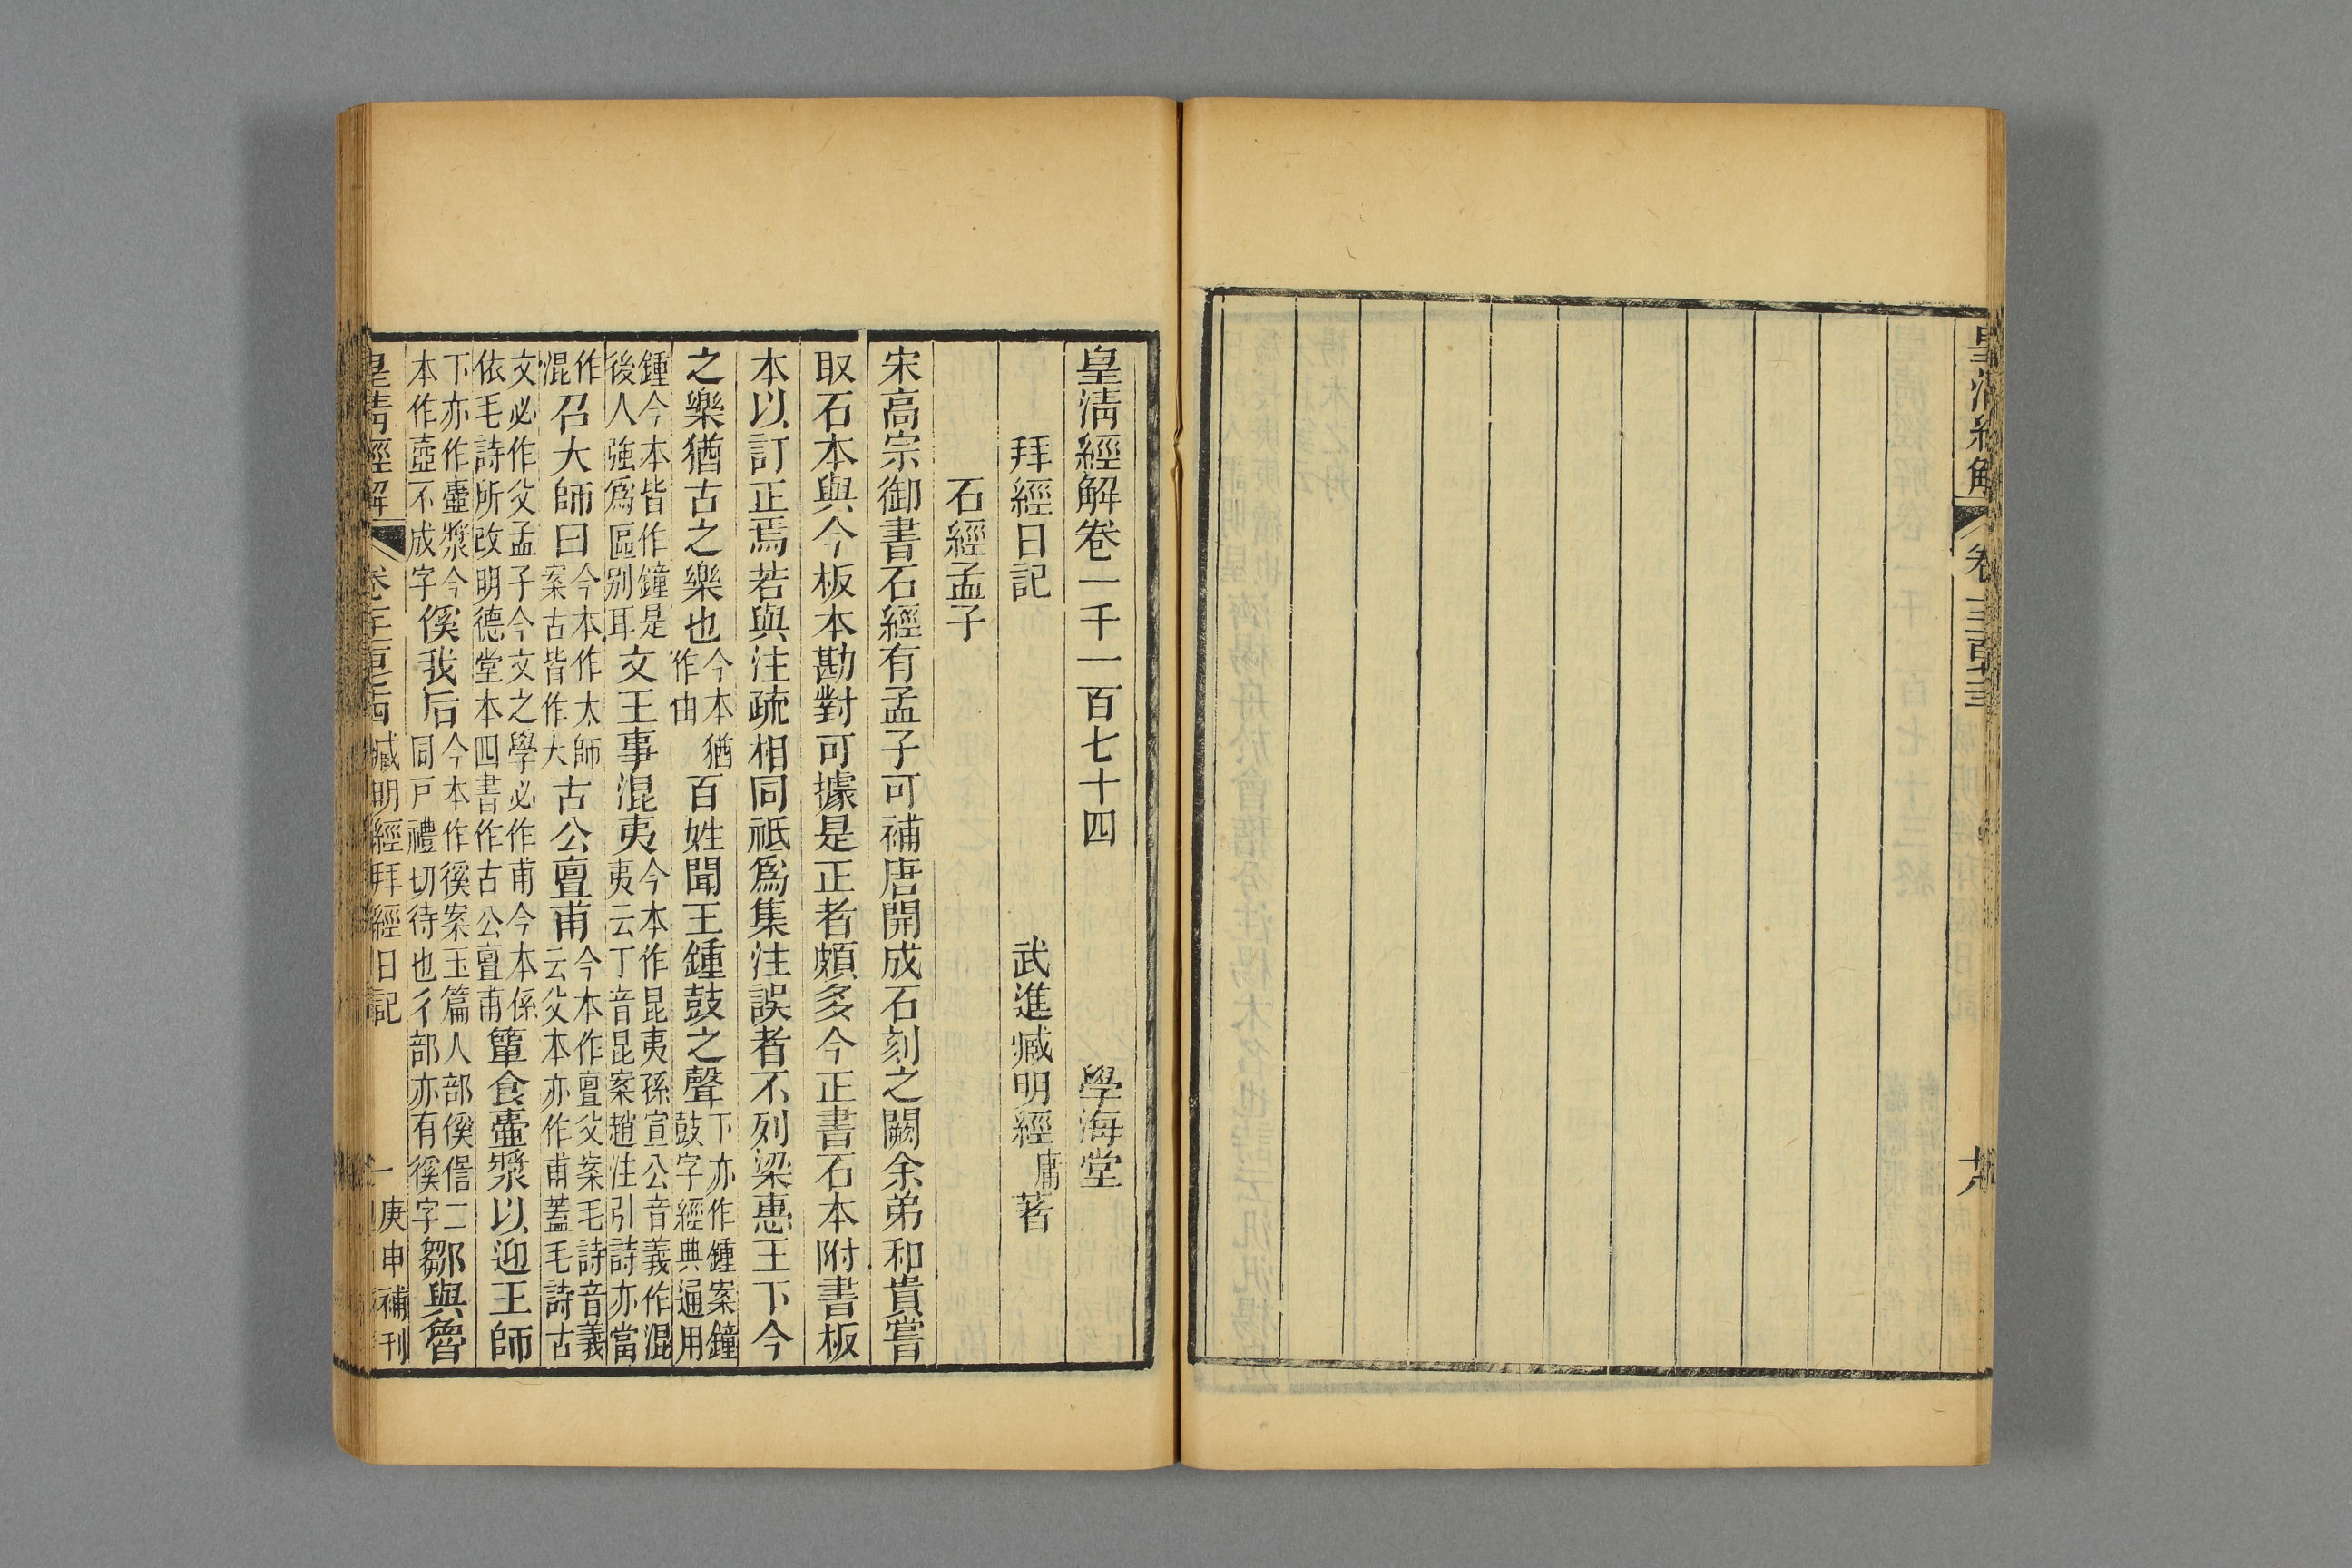 皇清經解卷一千一百七十四　學海堂
拜經日記　武進臧明經庸著
石經孟子
宋高宗御書石經有孟子可補唐開成石刻之闕余弟和貴嘗
取石本與今板本勘對可據是正者頗多今正書石本附書板
本以訂正焉若與注疏相同祗爲集注誤者不列梁惠王下今
之樂猶古之樂也今本猶作由百姓聞王鍾鼓之聲下亦作鍾案鐘鼓字經典通用
鍾今本皆作鐘是後人強爲區别耳文王事混夷今本作昆夷孫宣公音義作混夷云丁音昆案趙注引詩亦當
作混召大師曰今本作太師案古皆作大古公亶甫今本作亶父案毛詩音義云父本亦作甫蓋毛詩古
文必作父孟子今文之學必作甫今本係依毛詩所改明德堂本四書作古公亶甫簞食壷漿以迎王師
下亦作壷漿今本作壺不成字徯我后今本作徯案玉篇人部徯偣二同戸禮切待也彳部亦有徯字鄒與魯
皇清經解　卷千一百七十四　臧明經拜經日記　一　庚申補刊
皇清經解　卷